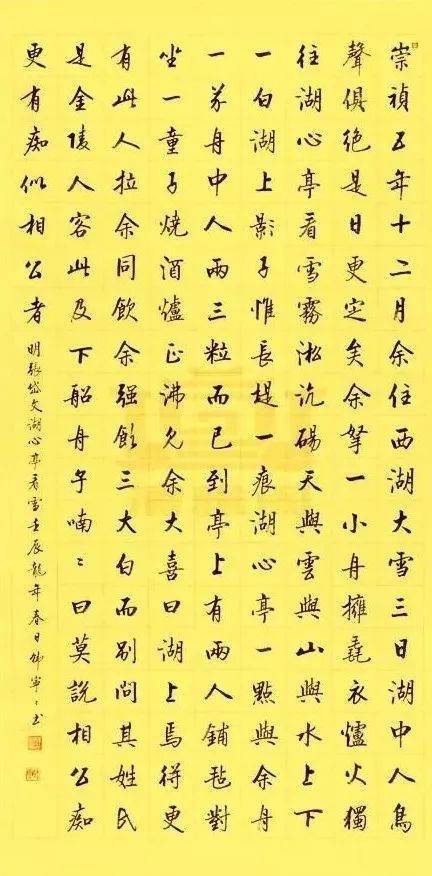 崇禎五年十二月余住西湖大雪三日湖中人鳥
聲俱絕是日更定矣余拏一小舟擁毳衣爐火獨
往湖心亭看雪霧淞沆碭天與雲與山與水上下
一白湖上影子惟長堤一痕湖心亭一點與余舟
一芥舟中人兩三粒而已到亭上有兩人鋪氈對
坐一童子燒酒爐正沸見余大喜曰湖上焉得更
有此人拉余同飲余強飲三大白而別問其姓氏
是金陵人客此及下船舟子喃〻曰莫說相公痴
更有痴似相公者
明張岱文湖心亭看雪壬辰龍年春日